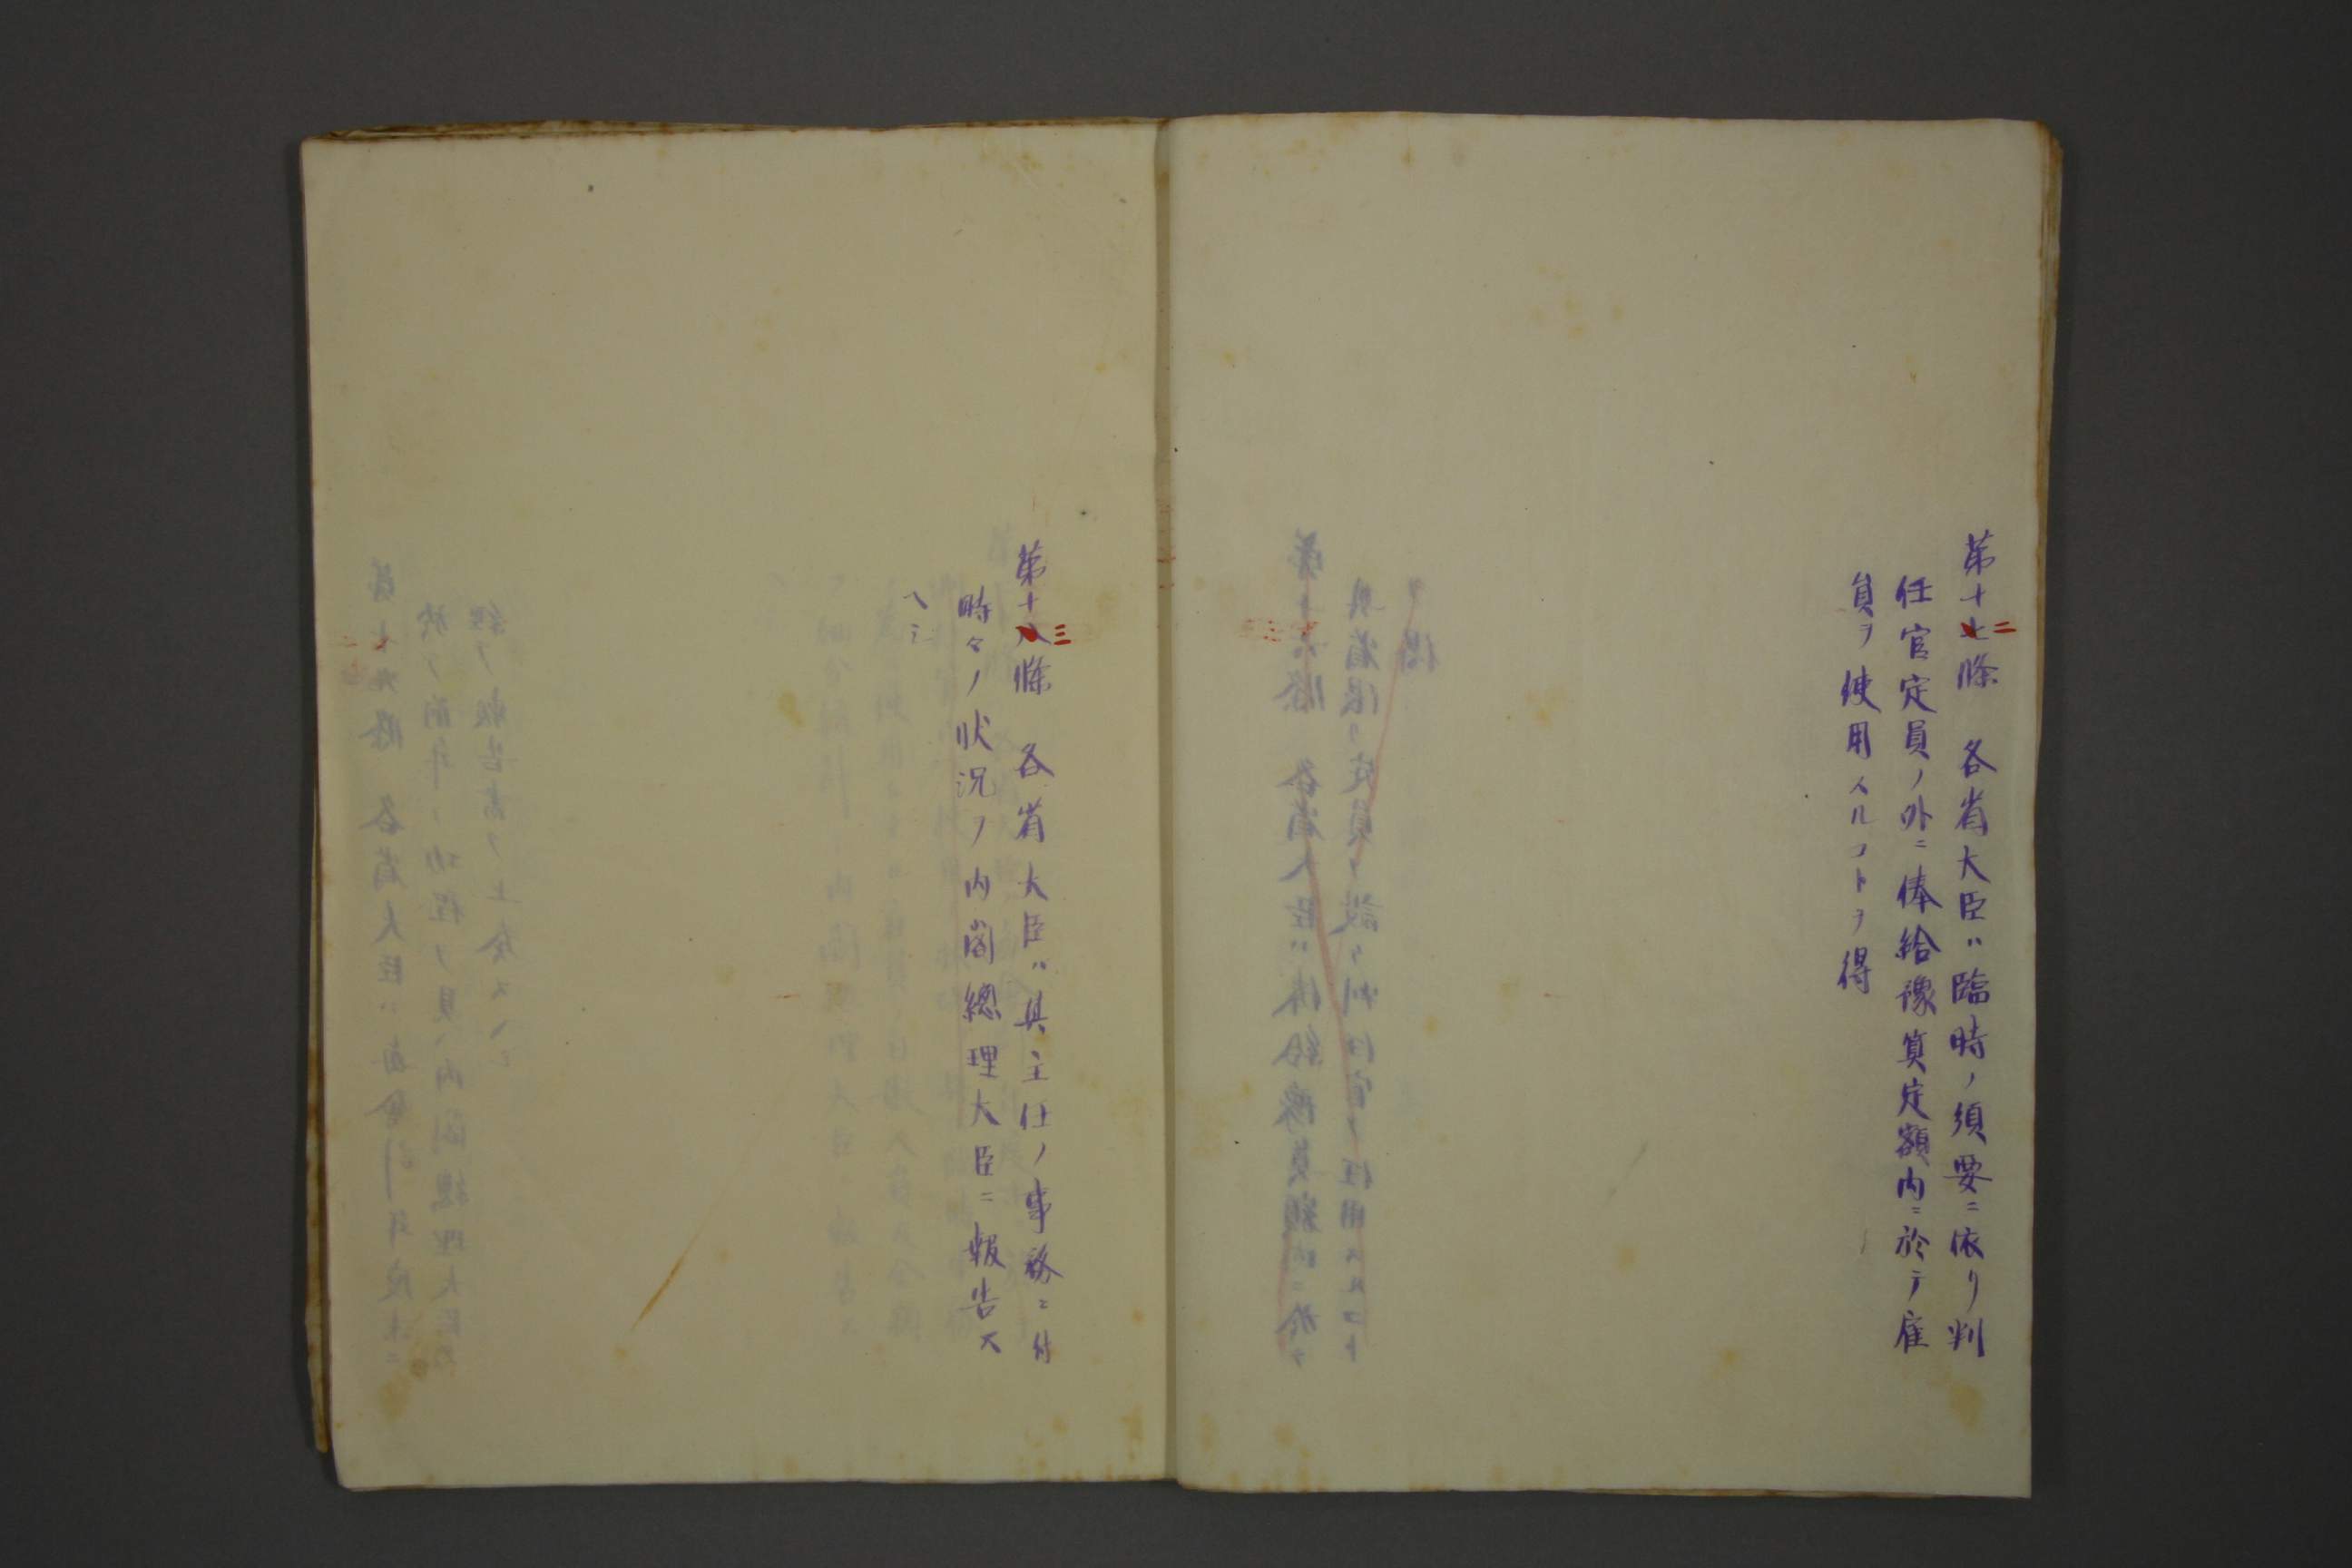 第十七二條　各省大臣ハ臨時ノ須要ニ依リ判
任官定員ノ外ニ俸給豫算定額内ニ於テ雇
員ヲ使用スルコトヲ得
第十八三條　各省大臣ハ其主任ノ事務ニ付
時々ノ状況ヲ内閣總理大臣ニ報告ス
ヘシ